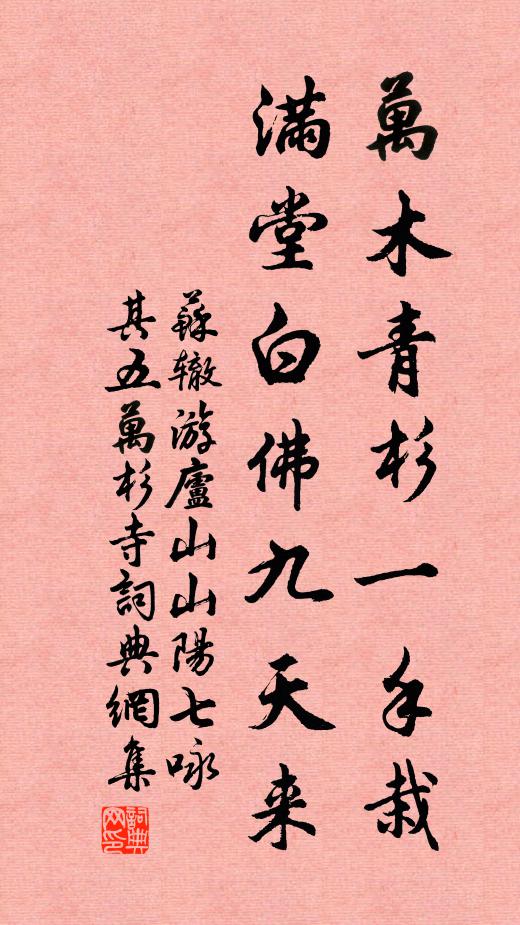 萬木青杉一手栽
滿堂白佛九天来
蘇辙游廬山山陽七咏
其五萬杉寺詞典網集
詞典网印